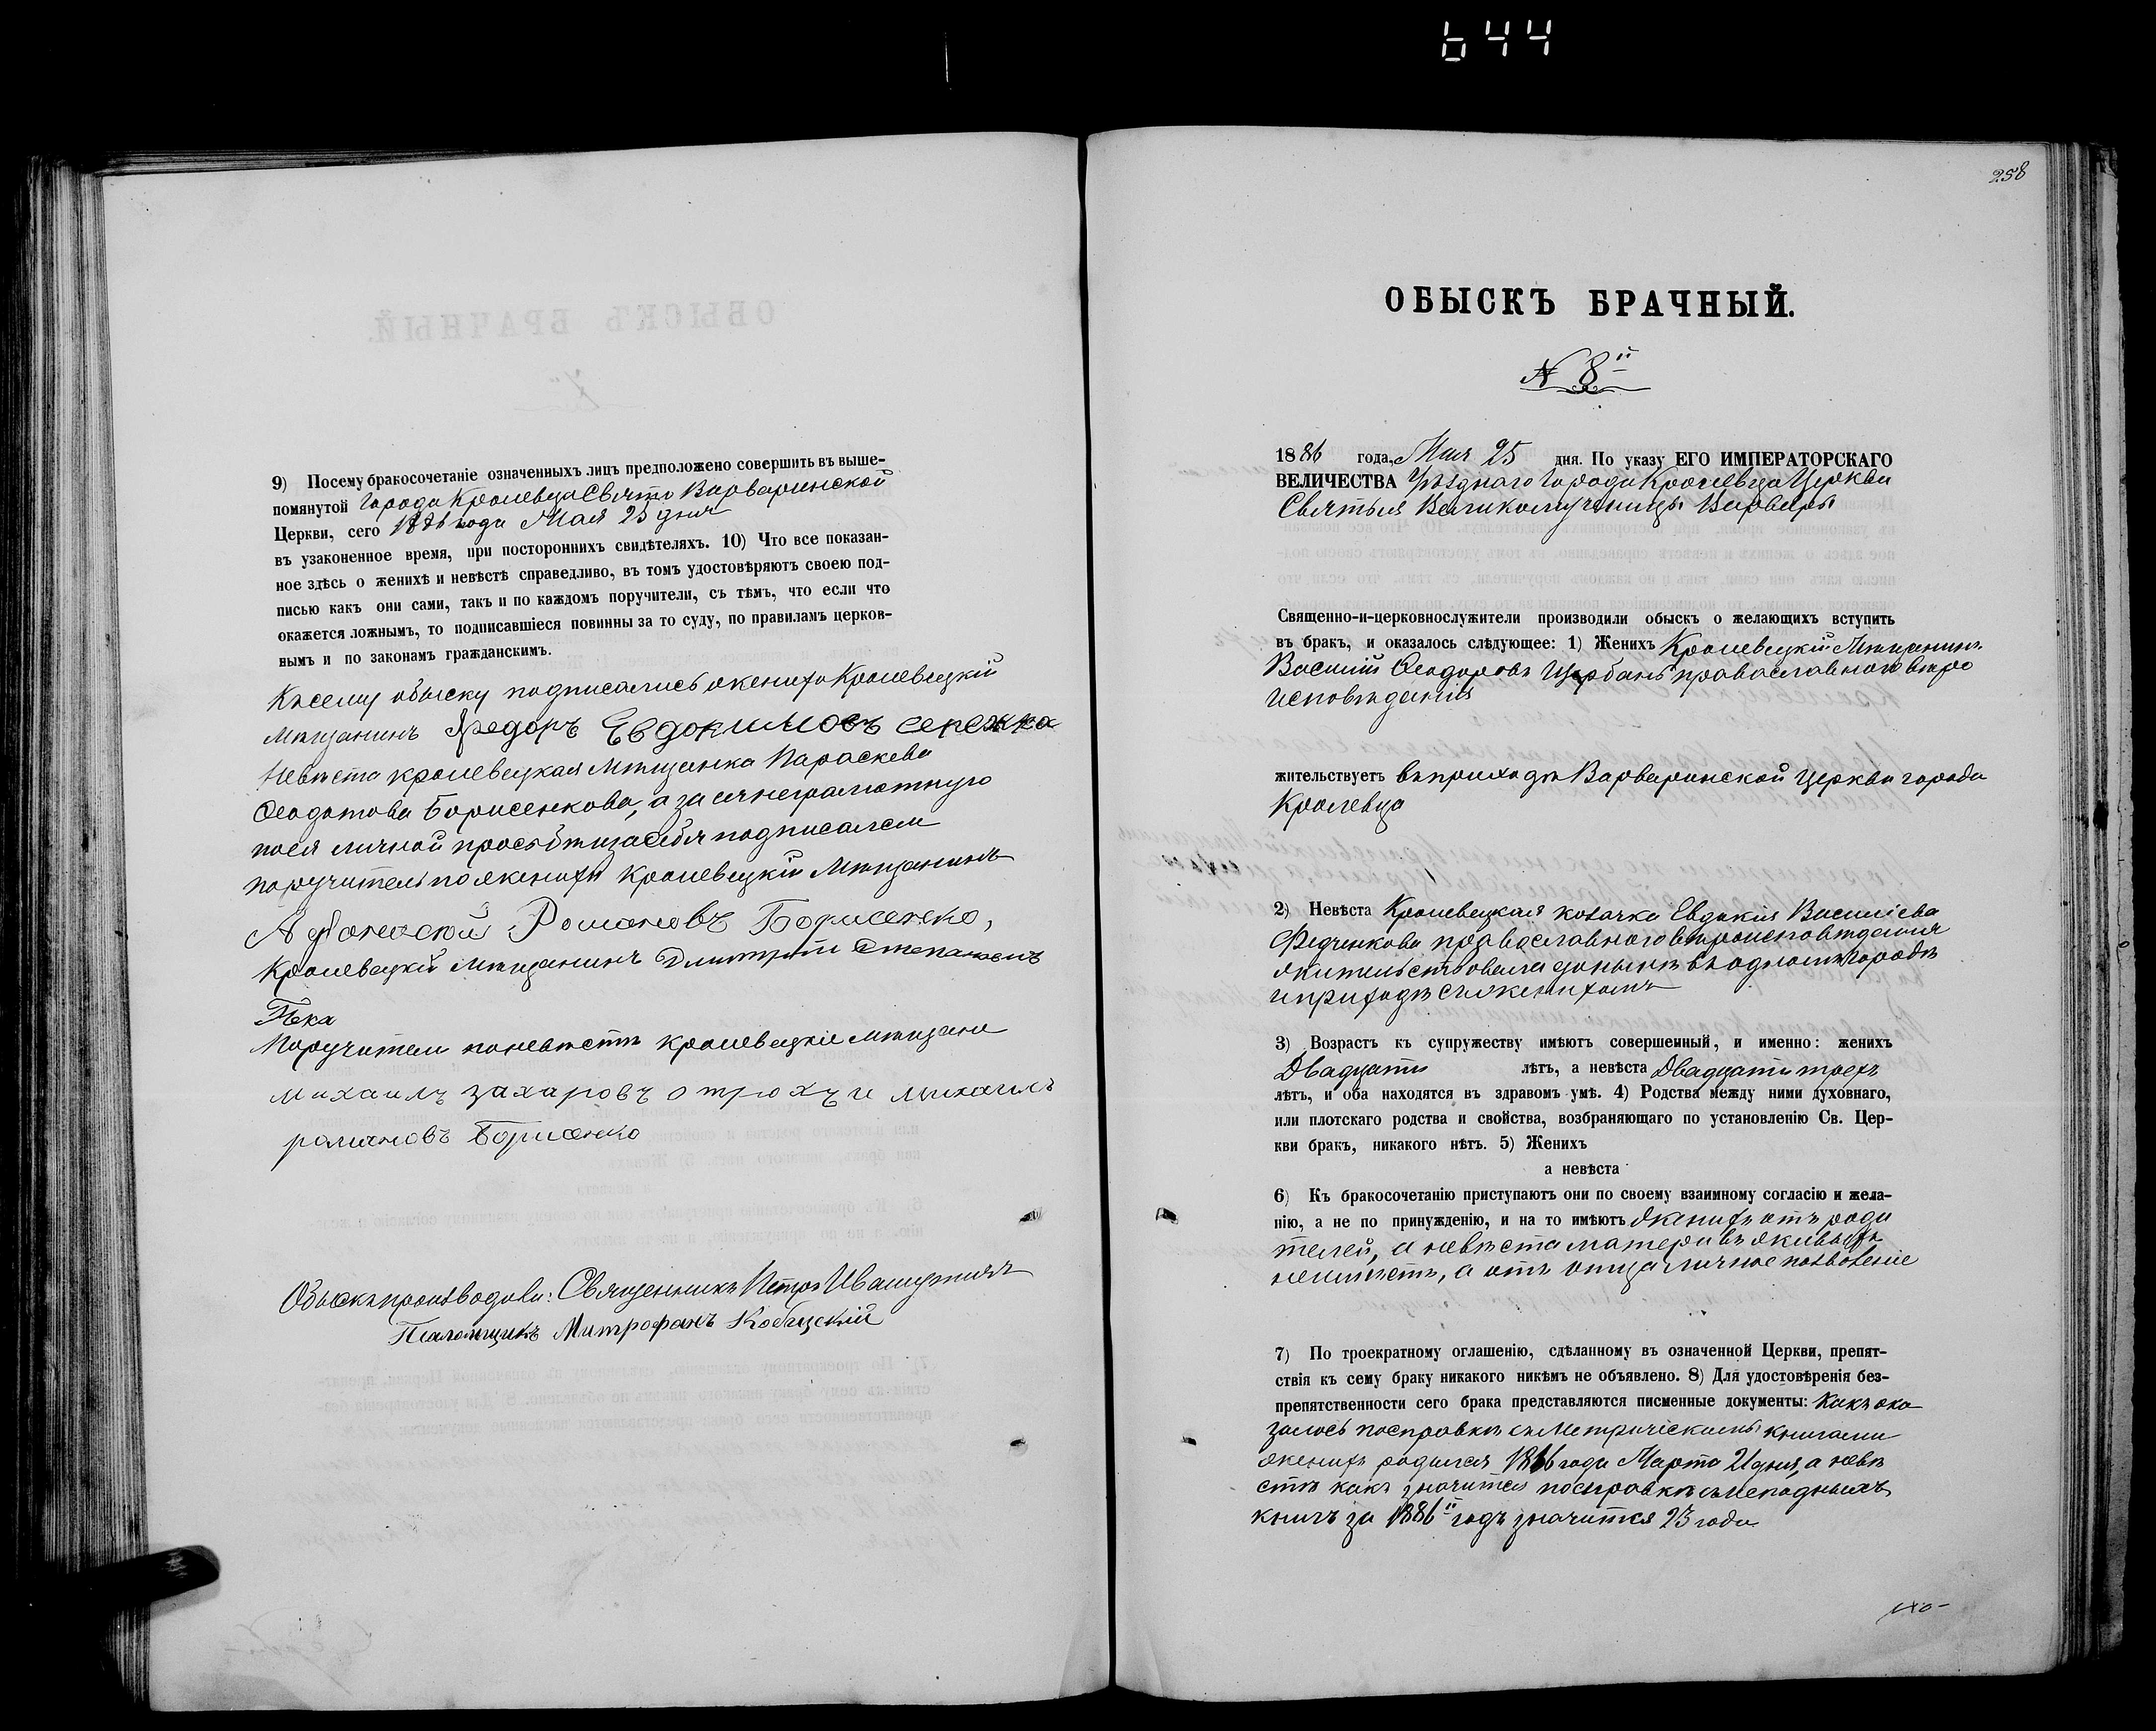 644
9) Посему бракосочетаніе означенныхъ лицъ предположено совершить въ выше-
помянутой Города Кролевца Свято Варваринской
Церкви, сего 1886 года Мая 25 дня
въ узаконенное время, при постороннихъ свидѣтеляхъ. 10) Что все показан-
ное здѣсь о женихѣ и невѣстѣ справедливо, въ томъ удостовѣряютъ своею под-
писью какъ они сами, такъ и по каждомъ поручители, съ тѣмъ, что если что
окажется ложнымъ, то подписавшіеся повинны за то суду, по правиламъ церков-
нымъ и по законамъ гражданскимъ.
Къ сему обыску подписались женихъ Кролевецкій
Мѣщанинъ Федоръ Евдокимовъ
Невѣста кролевецкая Мѣщанка Параскева
Феодотова Борисенкова, а за ея неграмотную
по ея личной просьбѣ и за себя подписался
поручитель по женихѣ Кролевецкій Мѣщанинъ
Афонасій Романовъ Борисенко,
Кролевецкій Мѣщанинъ Дмитрій
Поручители по невѣстѣ кролевецкіе мѣщане
михаилъ захаровъ отрохъ и михаилъ
романовъ Борисенко
Обыскъ производили: Священникъ Петръ
Псаломщикъ Митрофанъ
258
ОБЫСКЪ БРАЧНЫЙ.
№ 8й
1886 года, Мая 25 дня. По указу ЕГО ИМПЕРАТОРСКАГО
ВЕЛИЧЕСТВА Уѣзднаго Города Кролевца Церкви
Святыя Великомученицы Варвары
Священно-и-церковнослужители производили обыскъ о желающихъ вступить
въ бракъ, и оказалось слѣдующее: 1) Женихъ Кролевецкій Мѣщанинъ
Василій Феодоровъ Щербань православнаго вѣро
исповѣданія
жительствуетъ въ приходѣ Варваринской Церкви города
Кролевца
2) Невѣста Кролевецкая козачка Евдокія Василіева
Федченкова православнаго вѣроисповѣданія
жительствовала донынѣ въ одномъ городѣ
и приходѣ съ женихомъ
3) Возрастъ къ супружеству имѣютъ совершенный, и именно: женихъ
Двадцати лѣтъ, а невѣста Двадцати трехъ
лѣтъ, и оба находятся въ здравомъ умѣ. 4) Родства между ними духовнаго,
или плотскаго родства и свойства, возбраняющаго по установленію Св. Цер-
кви бракъ, никакого нѣтъ. 5) Женихъ
а невѣста
6) Къ бракосочетанію приступаютъ они по своему взаимному согласію и жела-
нію, а не по принужденію, и на то имѣютъ Женихъ отъ роди
телей, а невѣста матери въ живыхъ
неимѣетъ, а отъ отца личное позволеніе
7) По троекратному оглашенію, сдѣланному въ означенной Церкви, препят-
ствія къ сему браку никакого никѣмъ не объявлено. 8) Для удостовѣренія без-
препятственности сего брака представляются писменные документы: Какъ ока
залось по справкѣ съ Метрическими книгами
женихъ родился 1866 года Марта 21 дня, а невѣ
ста какъ значится по справкѣ съ исповѣдныхъ
книгъ за 1886й годъ значится 23 года